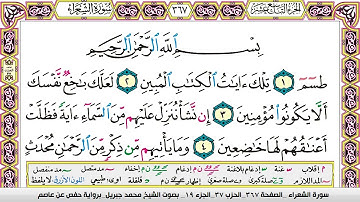 الجزء التاسع عشر ٣٦٧ سورة الشعراء
بِسْمِ ٱللَّهِ ٱلرَّحْمَٰنِ ٱلرَّحِيمِ
طسٓمٓ ١ تِلْكَ ءَايَٰتُ ٱلْكِتَٰبِ ٱلْمُبِينِ ٢ لَعَلَّكَ بَٰخِعٌ نَّفْسَكَ
أَلَّا يَكُونُوا۟ مُؤْمِنِينَ ٣ إِن نَّشَأْ نُنَزِّلْ عَلَيْهِم مِّنَ ٱلسَّمَآءِ ءَايَةً فَظَلَّتْ
أَعْنَٰقُهُمْ لَهَا خَٰضِعِينَ ٤ وَمَا يَأْتِيهِم مِّن ذِكْرٍ مِّنَ ٱلرَّحْمَٰنِ مُحْدَثٍ
سورة الشعراء الصفحة ٣٦٧ الحزب ٣٧ الجزء ١٩ بصوت الشيخ محمد جبريل برواية حفص عن عاصم